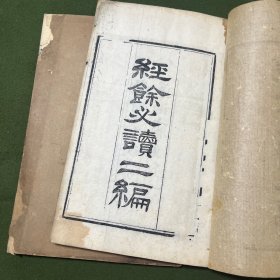 經餘必讀二編